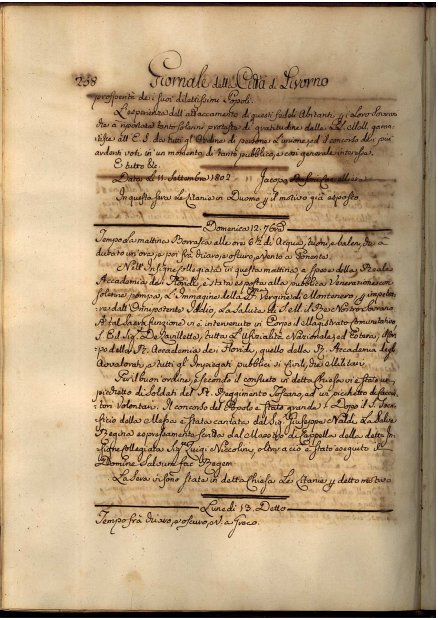 238 Giornale della Città di Livorno
prosperità de i suoi dilettissimi Popoli.
L'esperienza dell'attaccamento di questi fedeli Abitanti, i
di gratitudine delle LL. MM.
all' E. S. da tutti gl'Ordine di persone
ardenti voti in un momento di tanto pubblico, e così generale interesse.
E tutto ble
Data li 11. Settembre 1802. Jacopo
In questa sera le Litanie in Duomo p il motivo già esposto
Domenica 12. 7bre
Tempo la mattina Borrasca alle ore 6½ di Acqua, tuoni, e balen, che à
durato un'ora, e poi frà chiaro, e oscuro, e vento a Ponente.
Nell'Insigne Collegiata in questa mattina a spese della Reale
Accademia dei Floridi, è stata esposta alla pubblica Venerazione con
solenne pompa, l'Immagine della SS. Vergine di Montenero p impetra-
re dall'Onnipotente Iddio, la Salute di S. M. il Re Nostro Sovrano
A tal Sacra funzione vi è intervenuto in Corpo il Magistrato Comunitativo,
tutta l'Ufizialità Nazionale, ed Estera, il
po della R. Accademia dei Floridi, quello della R. Accademia degli
Avvalorati, e tutti gl'Impiegati pubblici sì Civili, che Militari.
Per il buon ordine, e secondo il consueto in detta Chiesa vi è stato un
picchetto di Soldati del R. Reggimento Toscano, ed un picchetto di Caccia-
tori Volontari. Il concorso del Popolo è stato grande. Dopo il S. Sacri-
ficio della Messa è stata cantata dal Sig. Giuseppe Naldi, La Salve
Regina espressamente scritta dal Maestro di Cappella della detta In-
signe Collegiata Sig. Luigi Niccolini, oltre a ciò è stato eseguito il
Domine Salvum fac Regem
La Sera vi sono state in detta Chiesa le Litanie p detto motivo
Lunedì 13. Detto
Tempo frà chiaro, e oscuro, V. a Greco.